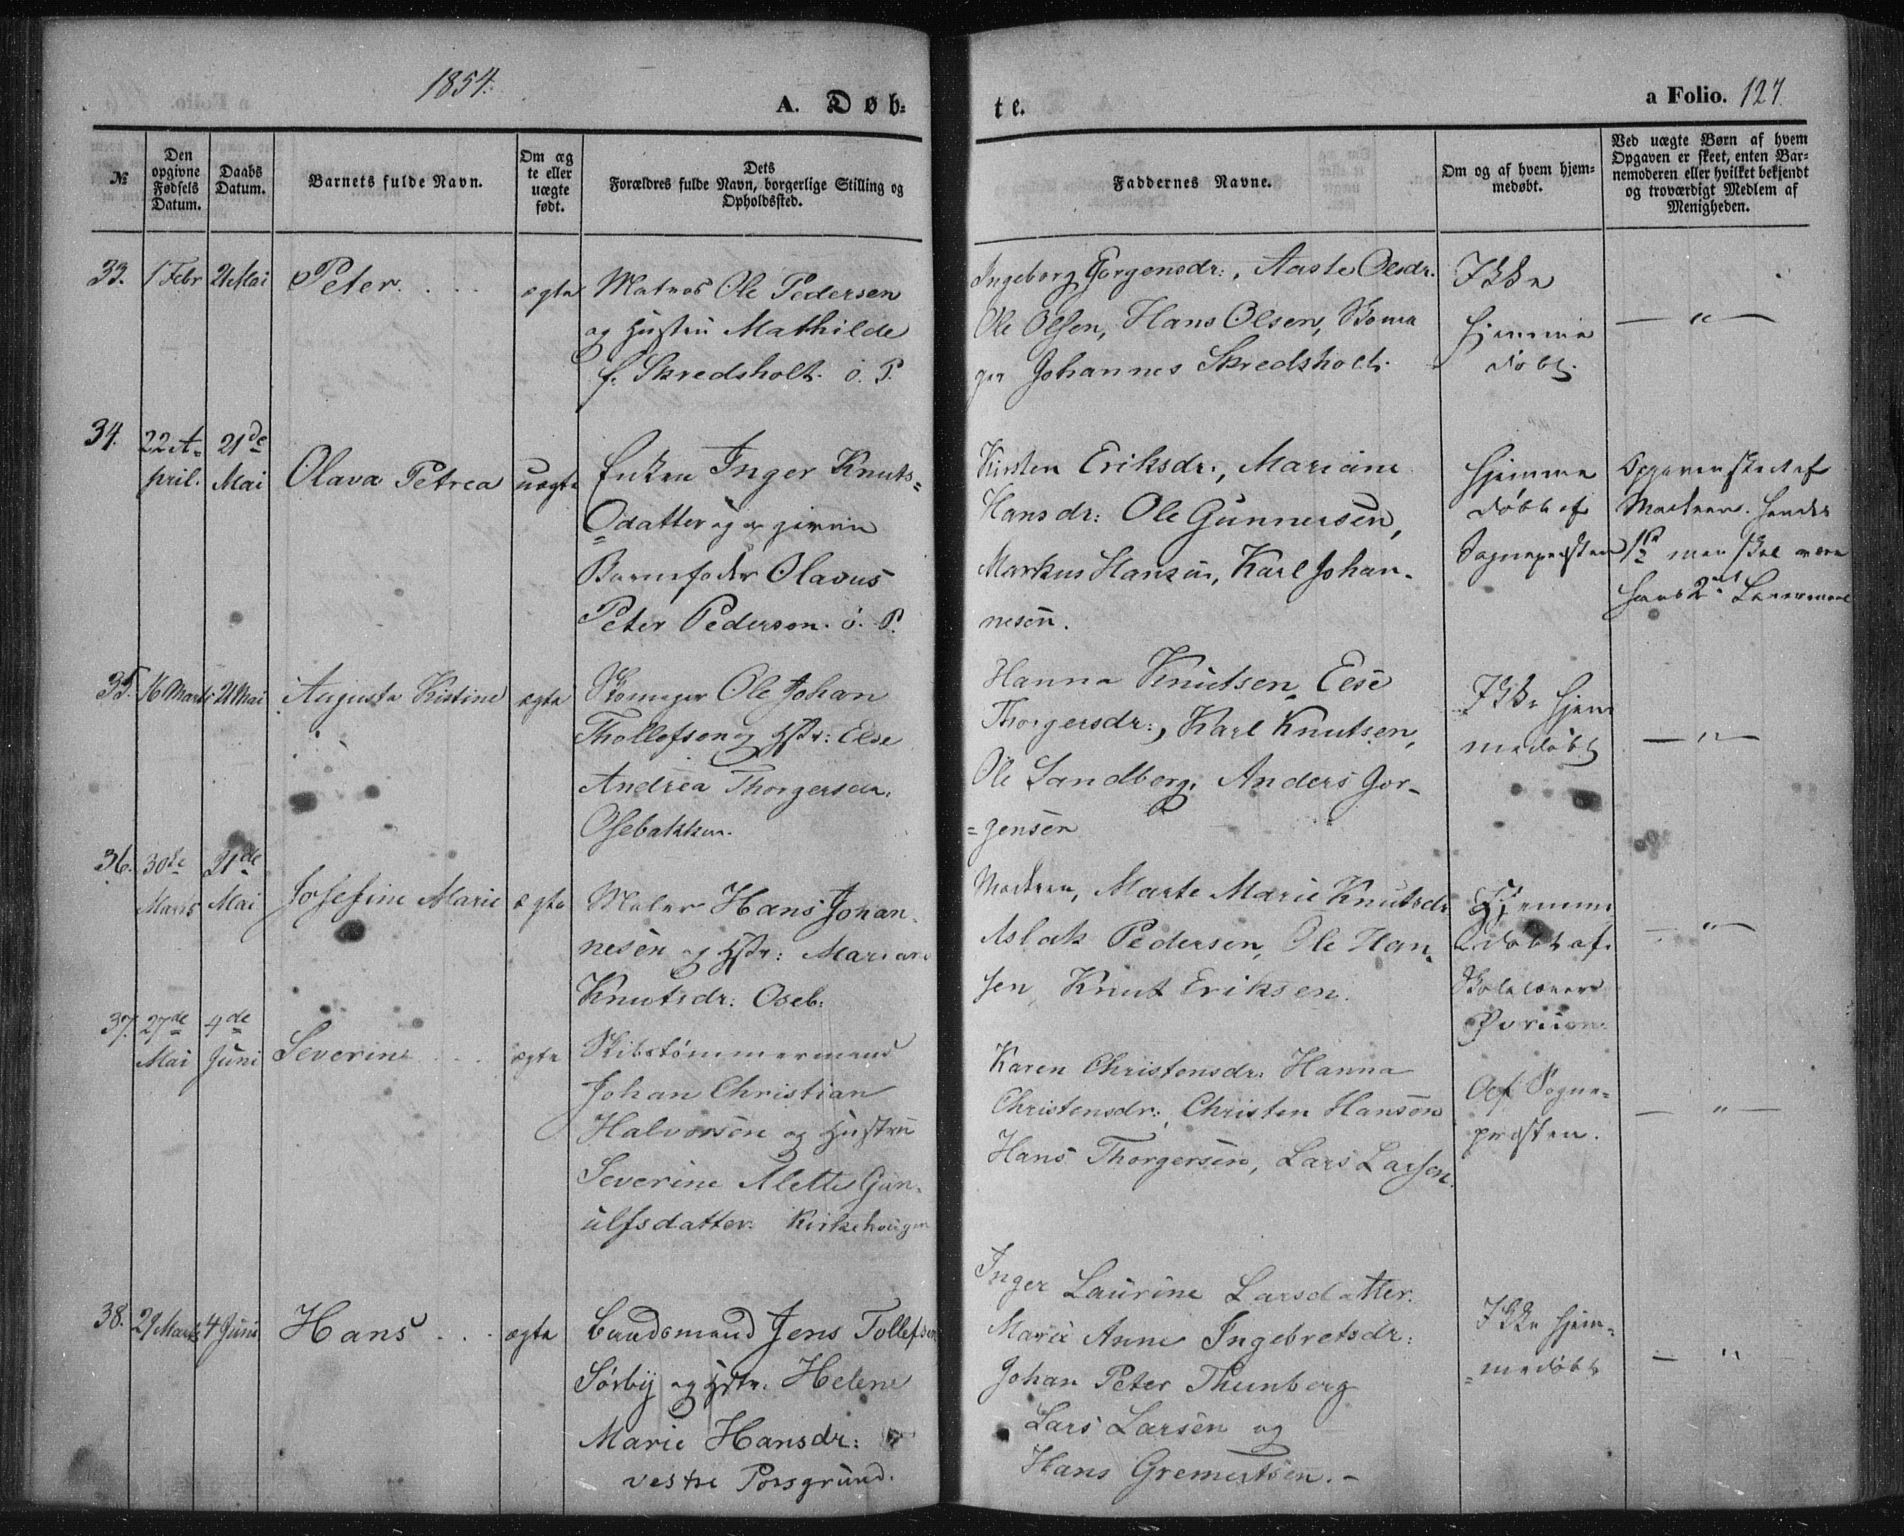 1854.
A. Døb-
te.
a Folio. 127.
№
Den opgivne Fødsels Datum.
Daabs Datum.
Barnets fulde Navn.
Om æg te eller uægte født.
Dets
Forældres fulde Navn, borgerlige Stilling og Opholdssted.
Faddernes Navne.
Om og af hvem hjem- medøbt.
Ved uægte Børn af hvem Opgaven er skeet, enten Bar- nemoderen eller hvilket bekjendt og troværdigt Medlem af Menigheden.
33. 1 Febr 21 Mai Peter. . . . ægte
Matros Ole Pedersen
og Hustru Mathilde
f. Skredsholt. ö. P.
Ingeborg Jorgensdr:, Aaste Olsdr.
Ole Olsen, Hans Olsen, Skoma
ger Johannes Skredsholt.
Ikke
hjemme
døbt.
— " —
34. 22 A-
pril. 21de
Mai Olava Petrea uægte
Enken Inger Knuts=
=datter og
Barnefader Olavus
Peter Pedersen. ö. P.
Kirsten Eriksdr:, Mariane
Hansdr: Ole Gunnersen,
Markus Hansen, Karl Johan-
nesen.
hjemme
døbt af
Sognepresten
Opgaven skeet af
Moderen. Hendes
hans 2det
35. 16 Marts 21 Mai Augusta Kistine ægte
Skomager Ole Johan
Thollefsen og Hstr: Else
Andrea Thorgersdr.
Osebakken.
Hanna Knutsen, Else
Thorgersdr:, Karl Knutsen,
Ole Sandberg, Anders Jor-
=gensen
Ikke hjem
medøbt
— " —
36. 30te
Marts 21de
Mai Josefine Marie ægte
Maler Hans Johan-
nesen og Hstr: Maria
Knutsdr: Oseb:
Moderen, Marte Marie Knutsdr
Aslak Pedersen, Ole Han-
sen, Knut Eriksen.
Hjemme
døbt af
Skolelærer
— " —
37. 27de
Mai 4de
Juni Severine . . . ægte
Skibstømmermand
Johan Christian
Halvorsen og Hustru
Severine Alette Gun-
ulfsdatter: Kirkehougen
Karen Christensdr. Hanna
Christensdr:, Christen Hansen
Hans Thorgersen, Lars Larsen.
Af Sogne-
presten.
— " —
38. 29 Marts 4 Juni Hans . . . ægte
Landsmand Jens Tollefsen
Sørby og Hstr. Helene
Marie Hansdr:
vestre Porsgrund.
Inger Laurine Larsdatter.
Marie Anne Ingebretsdr:
Johan Peter Thunberg
Lars Larsen og
Hans Gremertsen. -
Ikke hjem-
=medøbt
— "